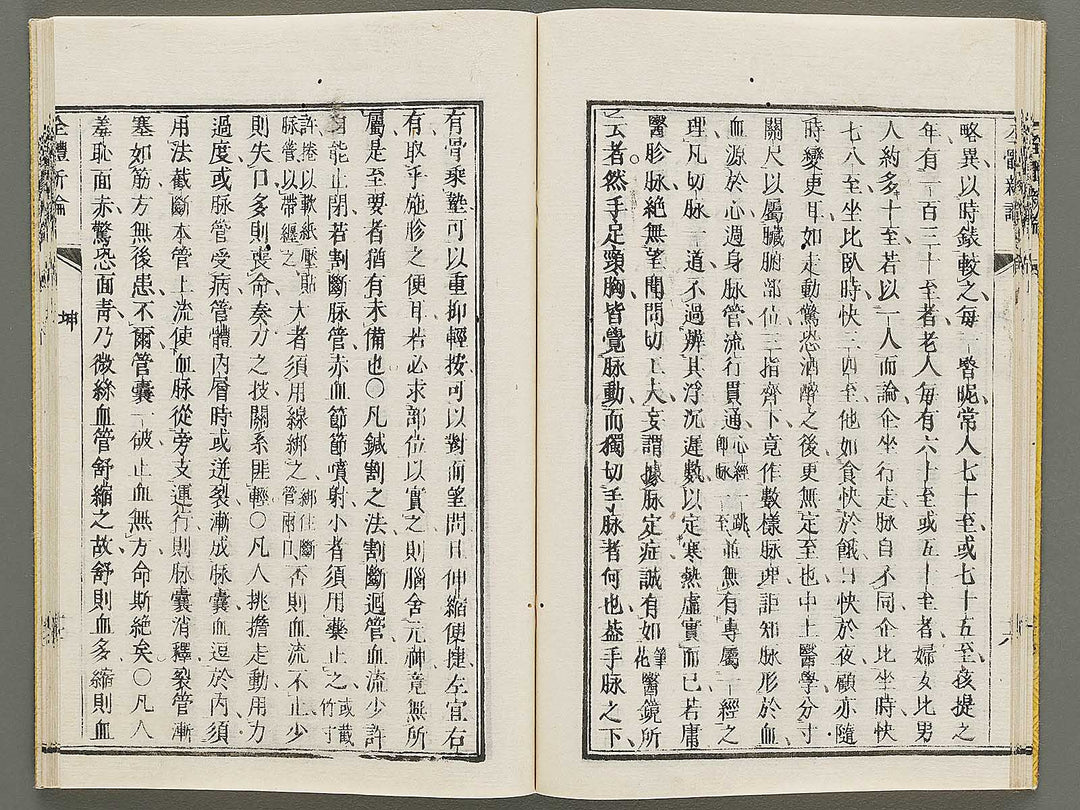 略異、以時錶較之、每一瞥呢常人七十至、或七十五至、孩提之
年、有一百二三十至者、老人每有六十至、或五十至者、婦女比男
人約多十至、若以一人而論、企坐行走、脉自不同、企比坐時快
七八至、坐比臥時快三四至、他如食快於餓、日快於夜、顧亦隨
時變更耳、如走動驚恐酒醉之後、更無定至也、中土醫學、分寸
關尺以屬臟腑部位、三指齊下、竟作數樣脉理、詎知脉形於血、
血源於心、週身脉管、流行貫通、心經一跳、卽脉一至、並無有專屬一經之
理、凡切脉一道、不過辨其浮沉遲數、以定寒熱虛實而已、若庸
醫胗脉、絕無望聞問切工夫、妄謂據脉定症、誠有如筆花醫鏡所
云者、然手足頸胸皆覺脉動、而獨切手脉者何也、蓋手脉之下、
有骨乘墊、可以重抑輕按、可以對面望問、且伸縮便捷、左宜右
有、取乎施胗之便耳、若必求部位以實之、則腦舍元神、竟無所
屬、是至要者猶有未備也○凡鍼割之法、割斷迴管、血流少許、
自能止閉、若割斷脉管、赤血節節噴射、小者須用藥止之、或截竹寸
許捲以軟紙壓貼脉嘗以帶纏之大者須用線綁之、綁住斷管兩口否則血流不止、少
則失口、多則喪命、奏刀之技、關系匪輕○凡人挑擔走動、用力
過度、或脉管受病、管體內層時或迸裂、漸成脉囊、血逗於內、須
用法截斷本管上流、使血脉從旁支運行、則脉囊消釋、裂管漸
塞如筋、方無後患、不爾管囊一破、止血無方、命斯絕矣○凡人
羞恥面赤、驚恐面靑、乃微絲血管舒縮之故、舒則血多、縮則血
全體新論
坤